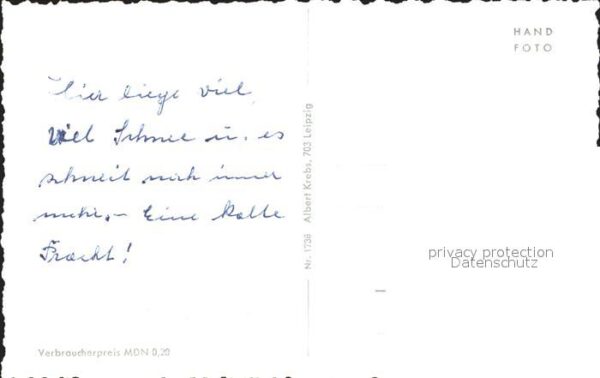 Hier liege viel,
viel Schnee u. es
schneit noch immer
mehr. – Eine kalte
Pracht!
Verbraucherpreis MDN 0,20
Nr. 1736 Albert Krebs, 703 Leipzig
HAND
FOTO
privacy protection
Datenschutz